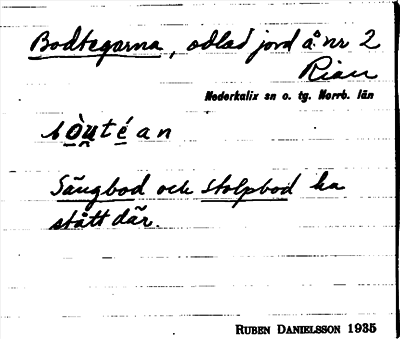 Bodtegarna, odlad jord å nr 2
Rian
Nederkalix sn o. tg. Norrb. län
Sängbod och stolpbod ha
stått där.
RUBEN DANIELSSON 1935